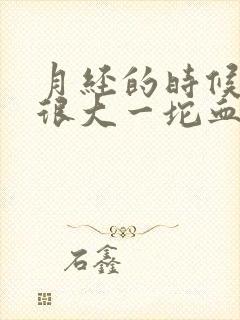 月经的时候
很大一坨血
石鑫